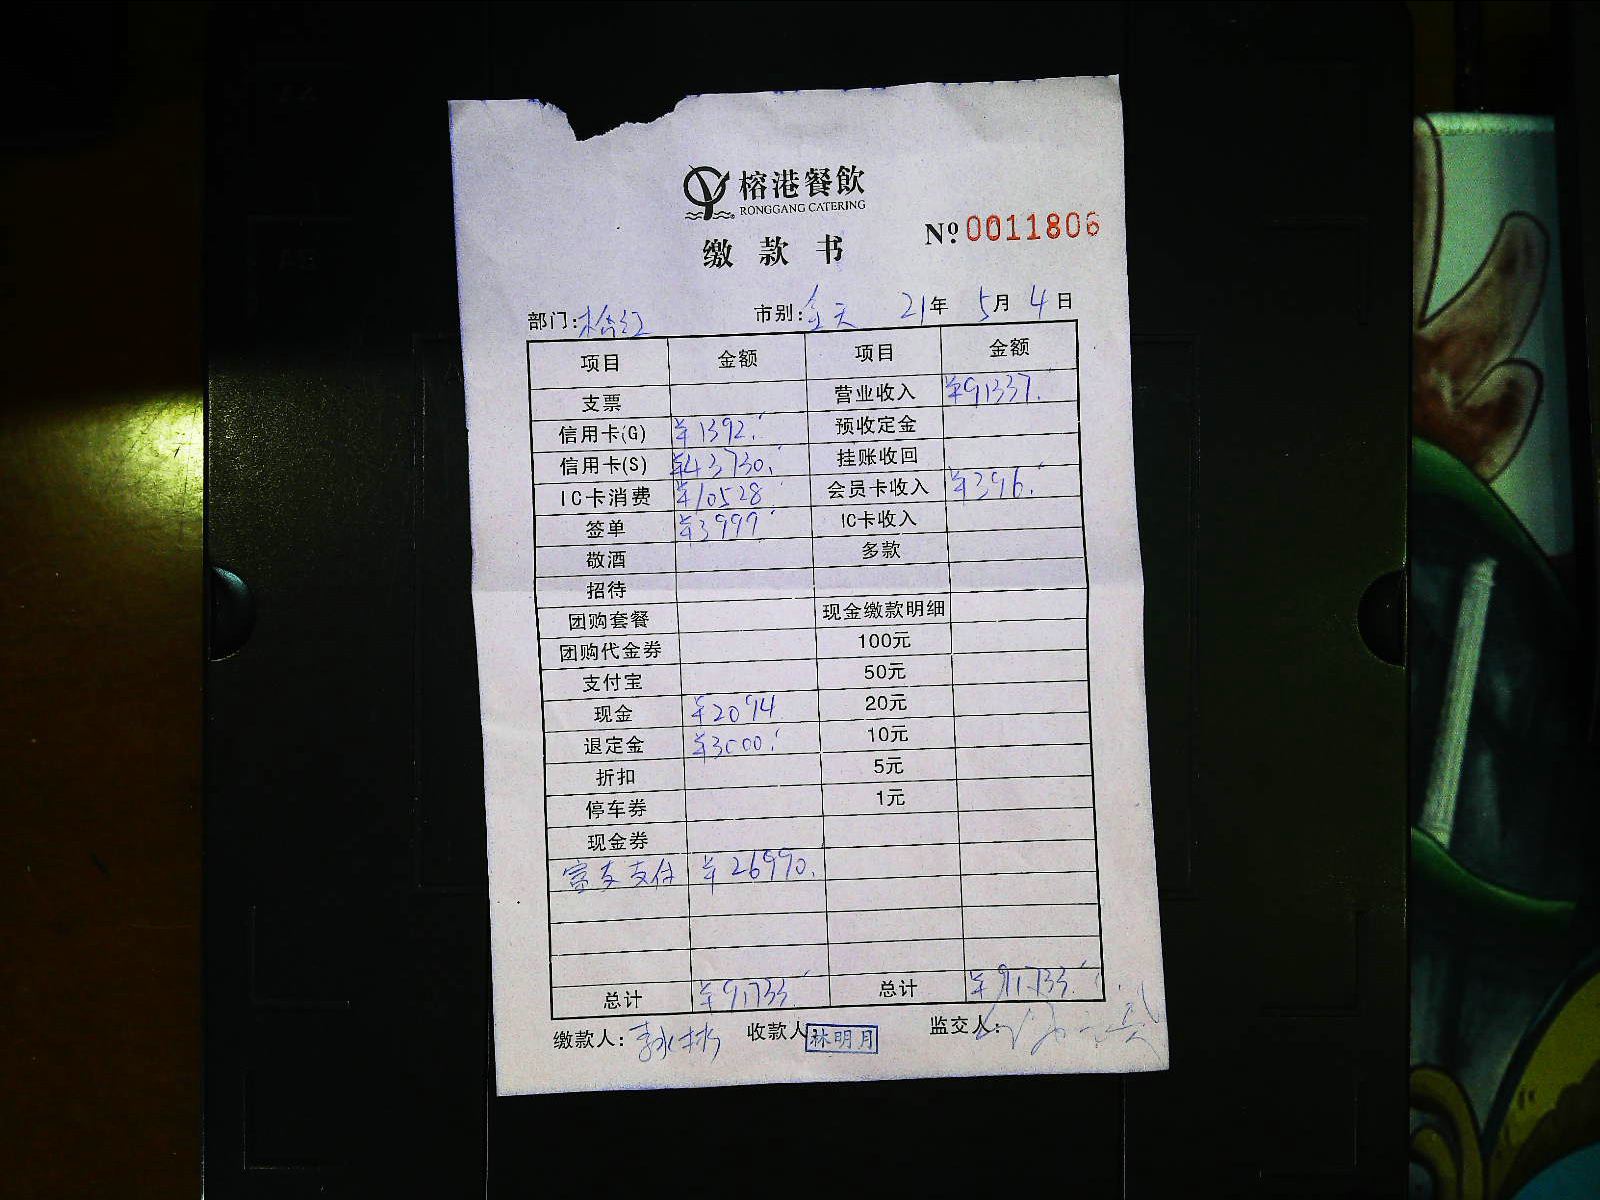 榕港餐飲
RONGGANG CATERING
缴 款 书
Nº. 0011806
部门: 榕江 市别: 全天 21年 5月 4日
项目 金额 项目 金额
支票 营业收入 ¥91337.
信用卡(G) ¥1392. 预收定金
信用卡(S) ¥43730. 挂账收回
IC卡消费 ¥10528 会员卡收入 ¥396.
签单 ¥3999 IC卡收入
敬酒 多款
招待
团购套餐 现金缴款明细
团购代金券 100元
支付宝 50元
现金 ¥2094 20元
退定金 ¥3000. 10元
折扣 5元
停车券 1元
现金券
富友支付 ¥26990.
总计 ¥91733 总计 ¥91733.
缴款人: 收款人: 林明月 监交人: